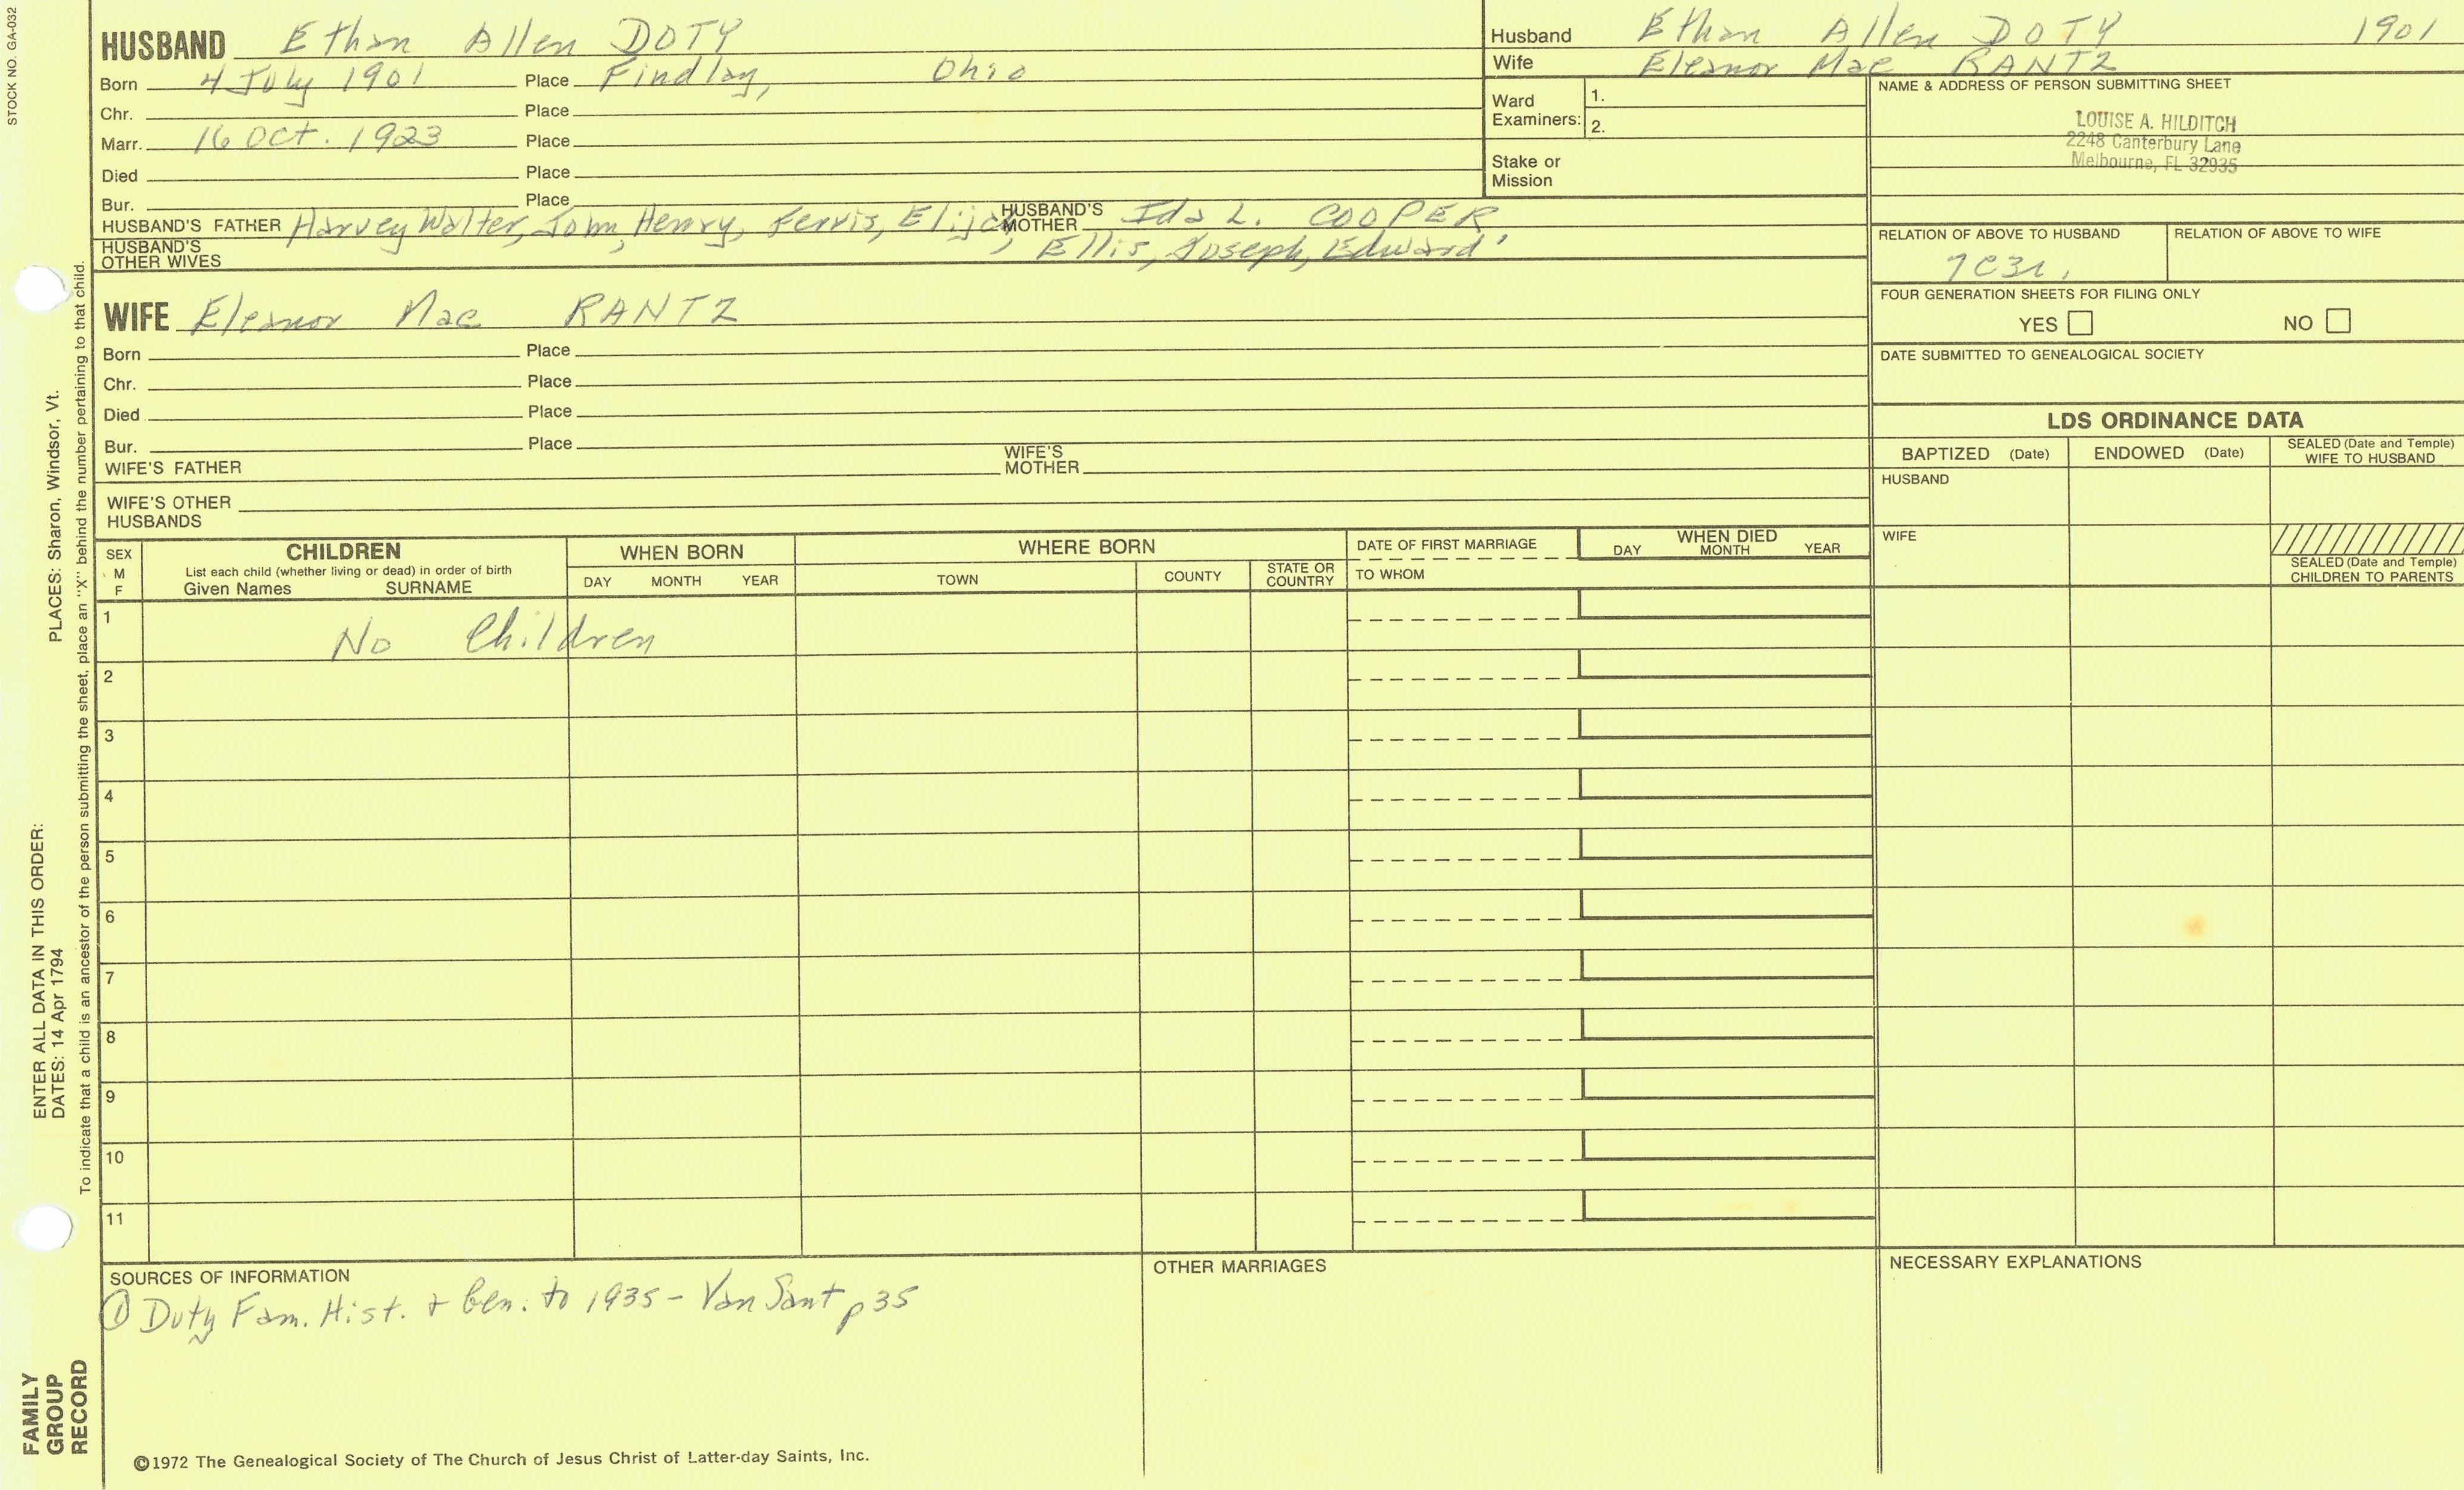 STOCK NO. GA-032
HUSBAND Ethan Allen DOTY
Born 4 July 1901 Place Findlay, Ohio
Chr. Place
Marr. 16 Oct. 1923 Place
Died Place
Bur. Place
HUSBAND'S FATHER Harvey Walter, John, Henry, Ferris, Elija, HUSBAND'S MOTHER Ida L. COOPER
HUSBAND'S OTHER WIVES Ellis, Joseph, Edward'
Husband Ethan Allen DOTY 1901
Wife Eleanor Mae RANTZ
Ward Examiners: 1.
2.
Stake or Mission
NAME & ADDRESS OF PERSON SUBMITTING SHEET
LOUISE A. HILDITCH
2248 Canterbury Lane
Melbourne, FL 32935
RELATION OF ABOVE TO HUSBAND RELATION OF ABOVE TO WIFE
7C3r.
FOUR GENERATION SHEETS FOR FILING ONLY
YES NO
DATE SUBMITTED TO GENEALOGICAL SOCIETY
WIFE Eleanor Mae RANTZ
Born Place
Chr. Place
Died Place
Bur. Place
WIFE'S FATHER WIFE'S MOTHER
WIFE'S OTHER HUSBANDS
LDS ORDINANCE DATA
BAPTIZED (Date) ENDOWED (Date) SEALED (Date and Temple) WIFE TO HUSBAND
HUSBAND
WIFE
SEALED (Date and Temple) CHILDREN TO PARENTS
SEX M F
CHILDREN
List each child (whether living or dead) in order of birth
Given Names SURNAME
WHEN BORN
DAY MONTH YEAR
WHERE BORN
TOWN COUNTY STATE OR COUNTRY
DATE OF FIRST MARRIAGE
TO WHOM
WHEN DIED
DAY MONTH YEAR
1 No Children
2
3
4
5
6
7
8
9
10
11
SOURCES OF INFORMATION
① Doty Fam. Hist. + Gen. to 1935 - Van Sant p 35
OTHER MARRIAGES
NECESSARY EXPLANATIONS
©1972 The Genealogical Society of The Church of Jesus Christ of Latter-day Saints, Inc.
FAMILY
GROUP
RECORD
ENTER ALL DATA IN THIS ORDER:
DATES: 14 Apr 1794 PLACES: Sharon, Windsor, Vt.
To indicate that a child is an ancestor of the person submitting the sheet, place an "X" behind the number pertaining to that child.